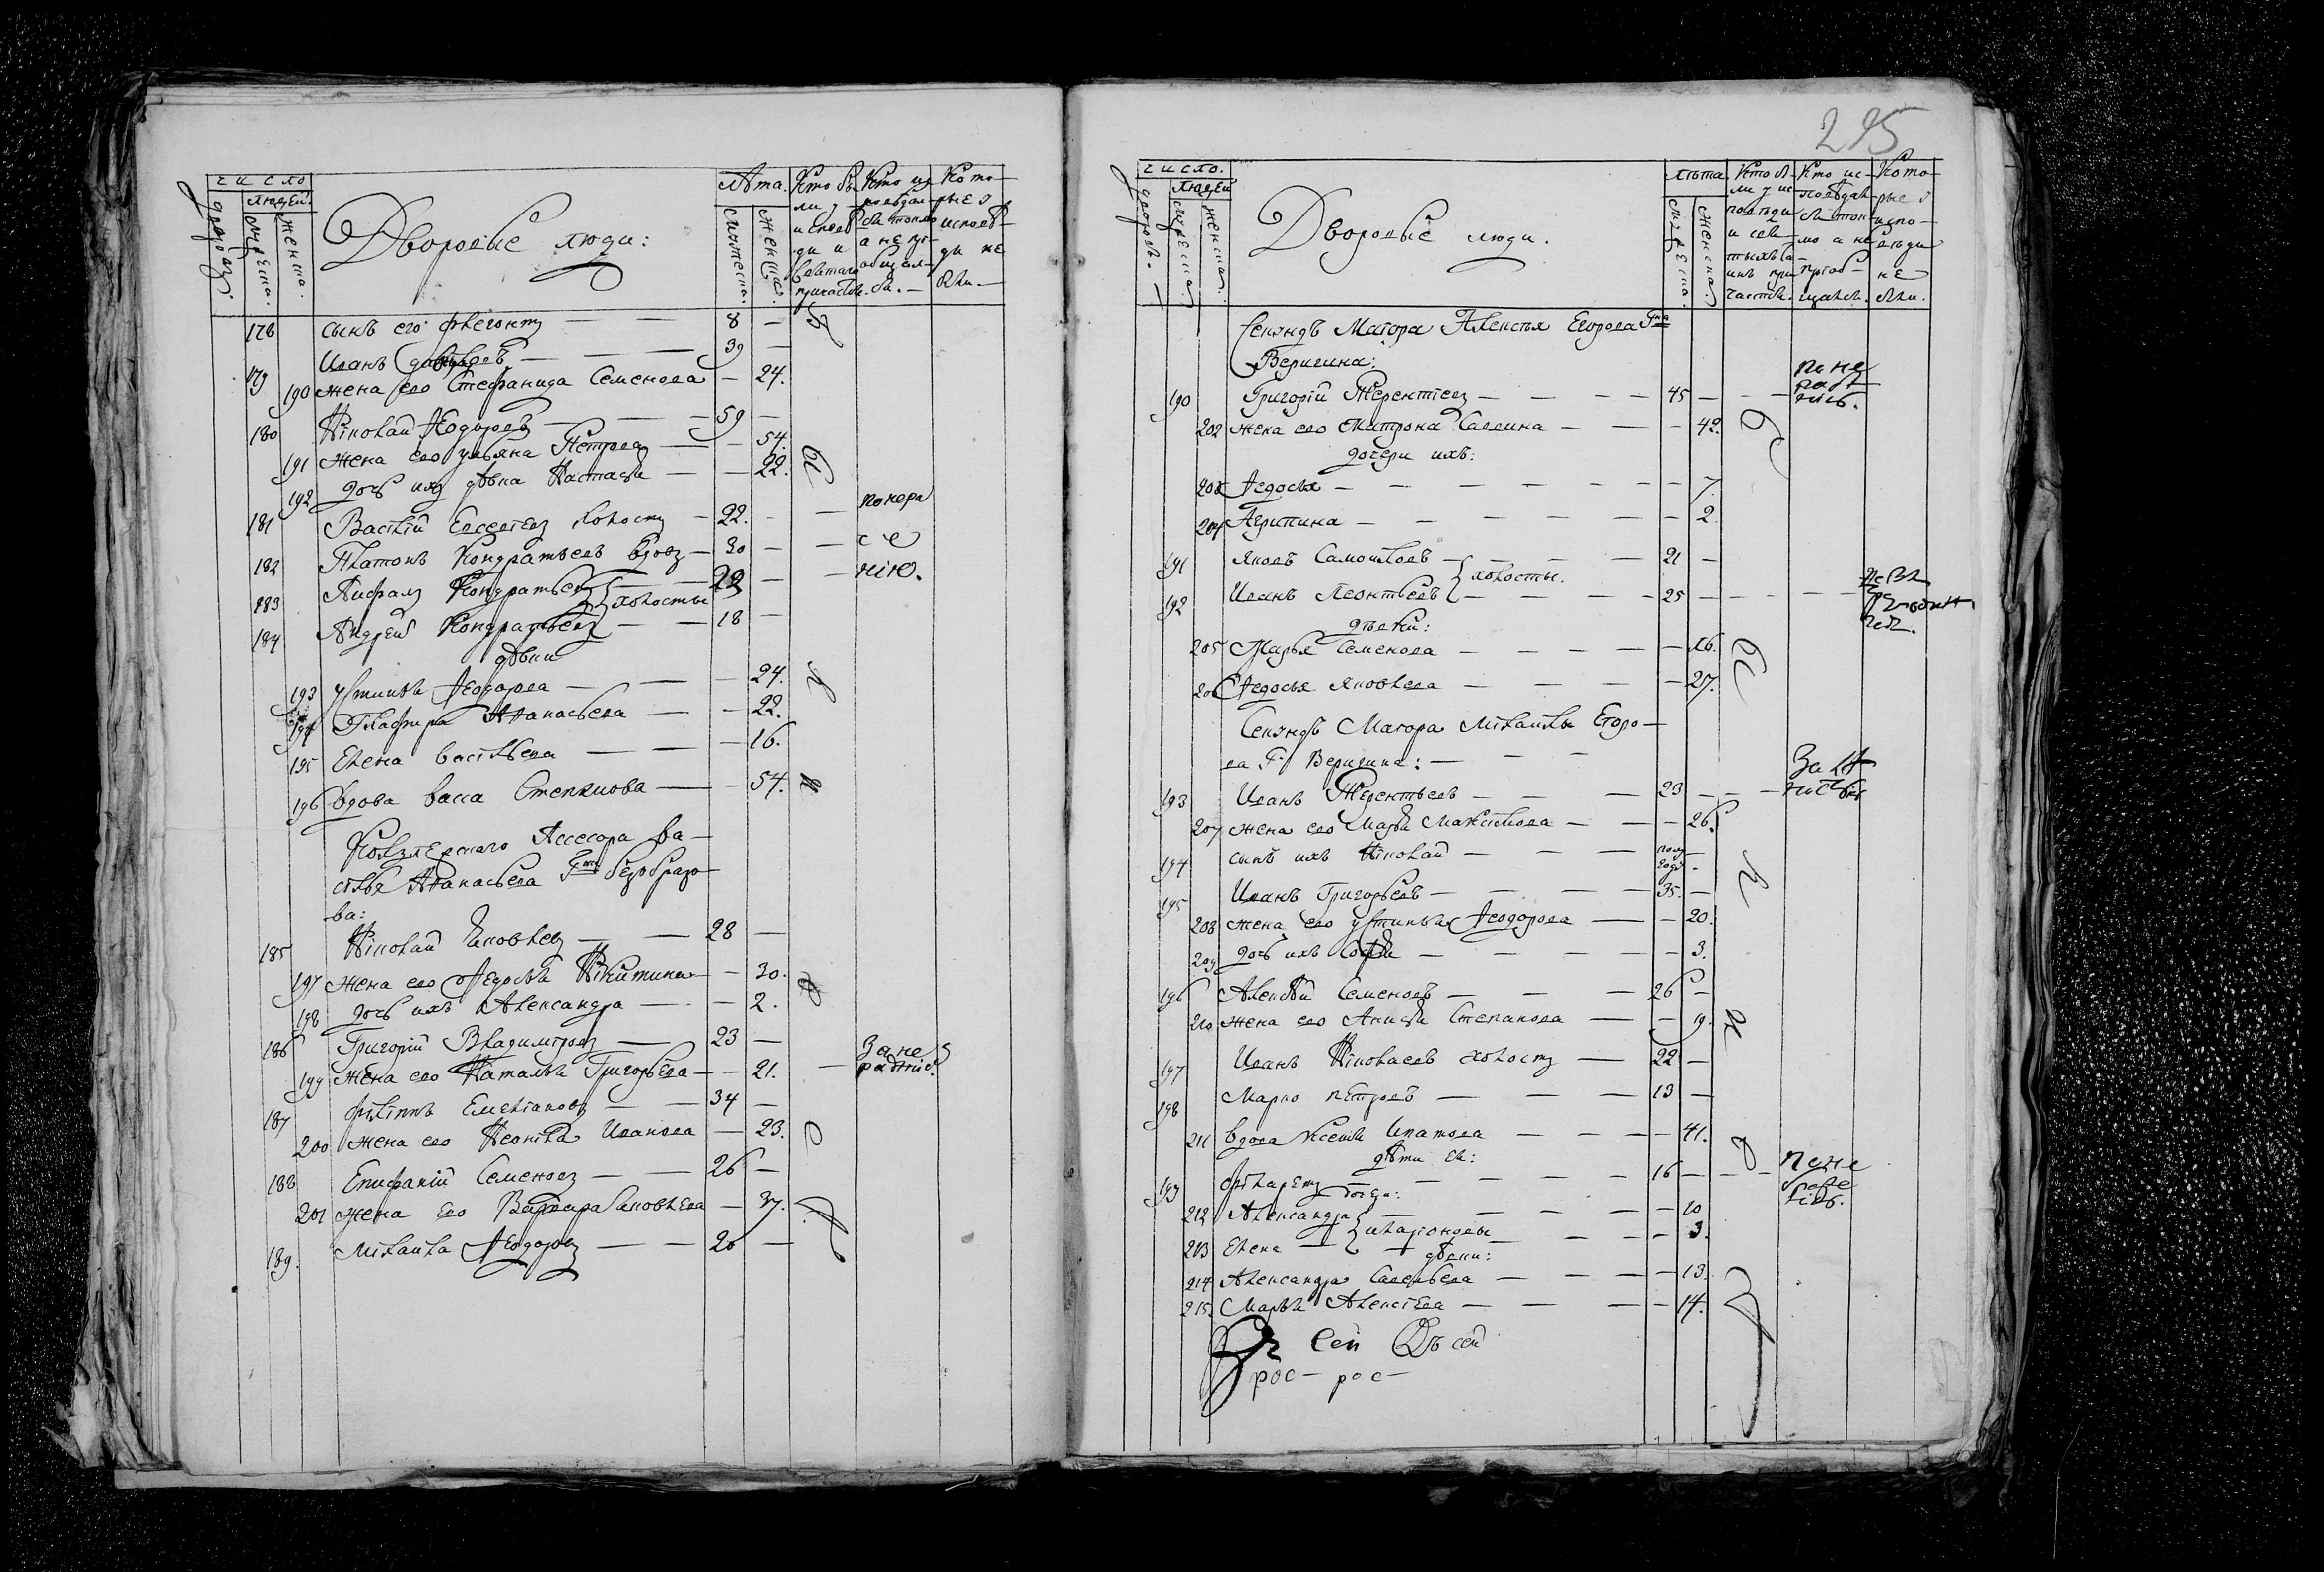 число
людей.
дворовъ.
мужеска.
женска.
Дворовые люди:
Лѣта.
мужеска.
женска.
Кто бы-
ли у
исповѣ
ди и
святаго
причастія.
Кто из
повѣдал
ся токмо
а не прі
общал
ся.
Кото-
рые у
исповѣ-
ди не
были.
178 сынъ его Флегонтъ — — 8 —
179 Иванъ — — 39 —
190 жена ево Стефанида Семенова — 24.
180 Николай Ѳедоровъ — — 59 —
191 жена ево Ульяна Петрова — — 54.
192 дочь ихъ дѣвка Настасья — — 22.
181 Василій Евсеевъ холостъ — 22. — —
182 Платонъ Кондратьевъ вдовъ — 30 — —
183 Кондратьевъ — — 22 — —
184 Андрей Кондратьевъ — — 18 —
холосты
по нера
сѣ
нію.
дѣвки
193 Устинья Ѳеодорова — — — 24.
194 Глафира Аѳанасьева — — 22.
195 Елена Васильева — — — 16.
196 Вдова Васса Степанова — — 54.
Коллежскаго Ассесора Ва-
силья Аѳанасьева Гна Безобразо
ва:
185 Николай Яковлевъ — — 28 —
197 жена ево Ѳедосья Никитина — — 30.
198 дочь ихъ Александра — — — 2.
186 Григорій Владимировъ — 23 —
199 жена ево Наталья Григорьева — — 21. —
За не
радѣніе.
187 Филиппъ Емельяновъ — — 34 —
200 жена ево Иванова — 23.
188 Епифаній Семеновъ — — 26 —
201 жена ево Варвара Яковлева — 37.
189. Михайла Ѳеодоровъ — — 20 —
295
число.
людей
дворовъ.
мужеска.
женска.
Дворовые люди.
лѣта
мужеска.
женска.
Кто бы-
ли у ис
повѣди
и свя-
тыхъ та-
инъ при
частія.
Кто ис-
повѣдал
ся ток-
мо а не
пріоб-
щался.
Кото-
рые у
испо-
вѣди
не
были.
Секундъ Маіора Алексѣя Егорова Гна
Веригина:
190 Григорій Терентіевъ — — — — 45 — — —
по не
радѣ
нію.
202 жена ево Матрона Саввина — — — 42.
дочери ихъ:
203 Ѳедосья — — — — — — — 7.
204 Агрипина — — — — — — 2.
191 Яковъ Самойловъ — — — — 21 —
192 Иванъ Леонтьевъ — — — — 25 — — — —
холосты.
дѣвки:
205 Марья Семенова — — — — — 16.
206 Ѳедосья Яковлева — — — — 27.
Секундъ Маіора Михайлы Егоро-
ва Г. Веригина: — — —
193 Иванъ Терентьевъ — — — 23 — — —
207 жена ево Марья Максимова — — — 26.
194 сынъ ихъ Николай — — — полу
года —
195 Иванъ Григорьевъ — — — — 35. —
208 жена ево Устинья Ѳеодорова — — 20.
209 дочь ихъ Софья — — — — — 3.
196 Алексѣй Семеновъ — — — 26 —
210 жена ево Анисья Степанова — — 19.
197 Иванъ Николаевъ холостъ — 22 —
198 Марко Петровъ — — — 13 —
211 Вдова Ксенья Ипатова — — — — 41.
дѣти ея:
199 Филаретъ — — — — — 16 — — —
по не
радѣ
нію.
212 Александра — — — — — — 10
213 Елена — — — — — 3.
дѣвки:
214 Александра Савельева — — — — 13.
215. Марья Алексѣева — — — — 14.
сей
рос- рос-